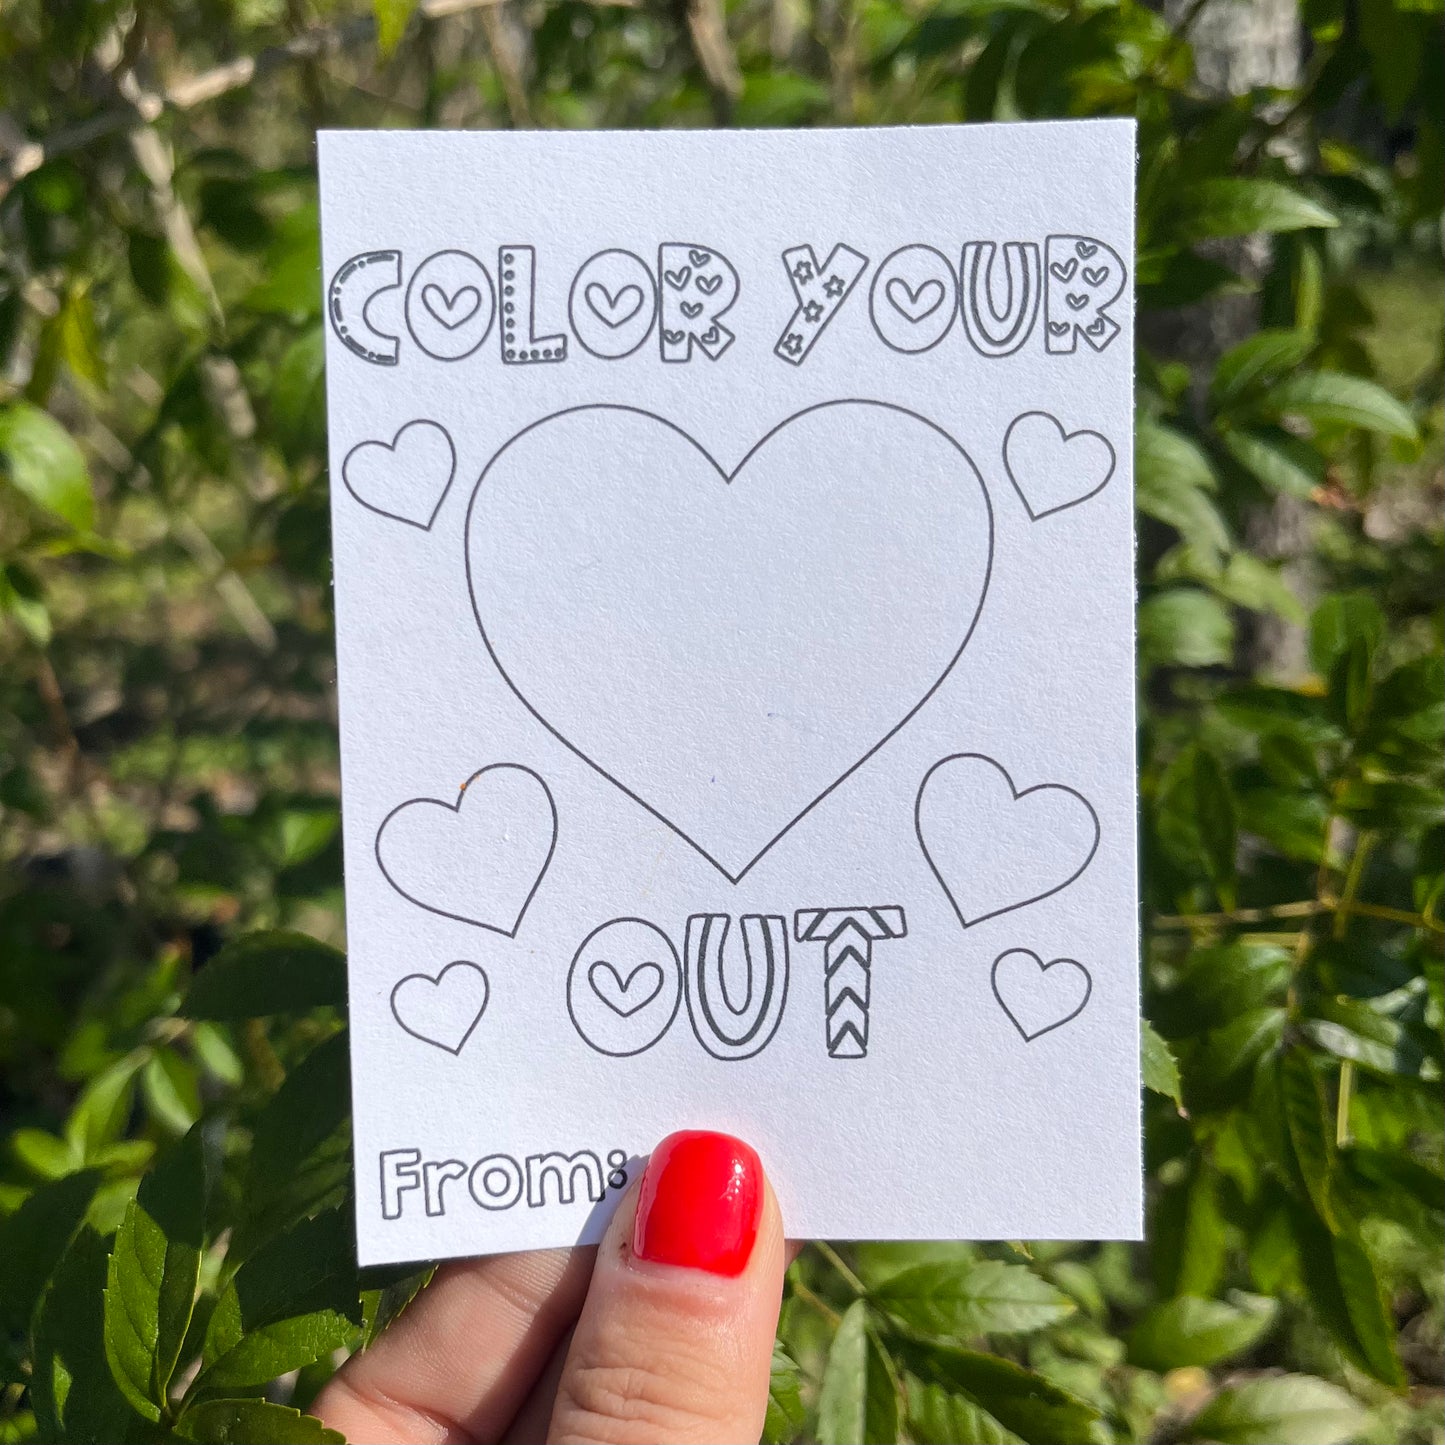 COLOR YOUR
OUT
From: